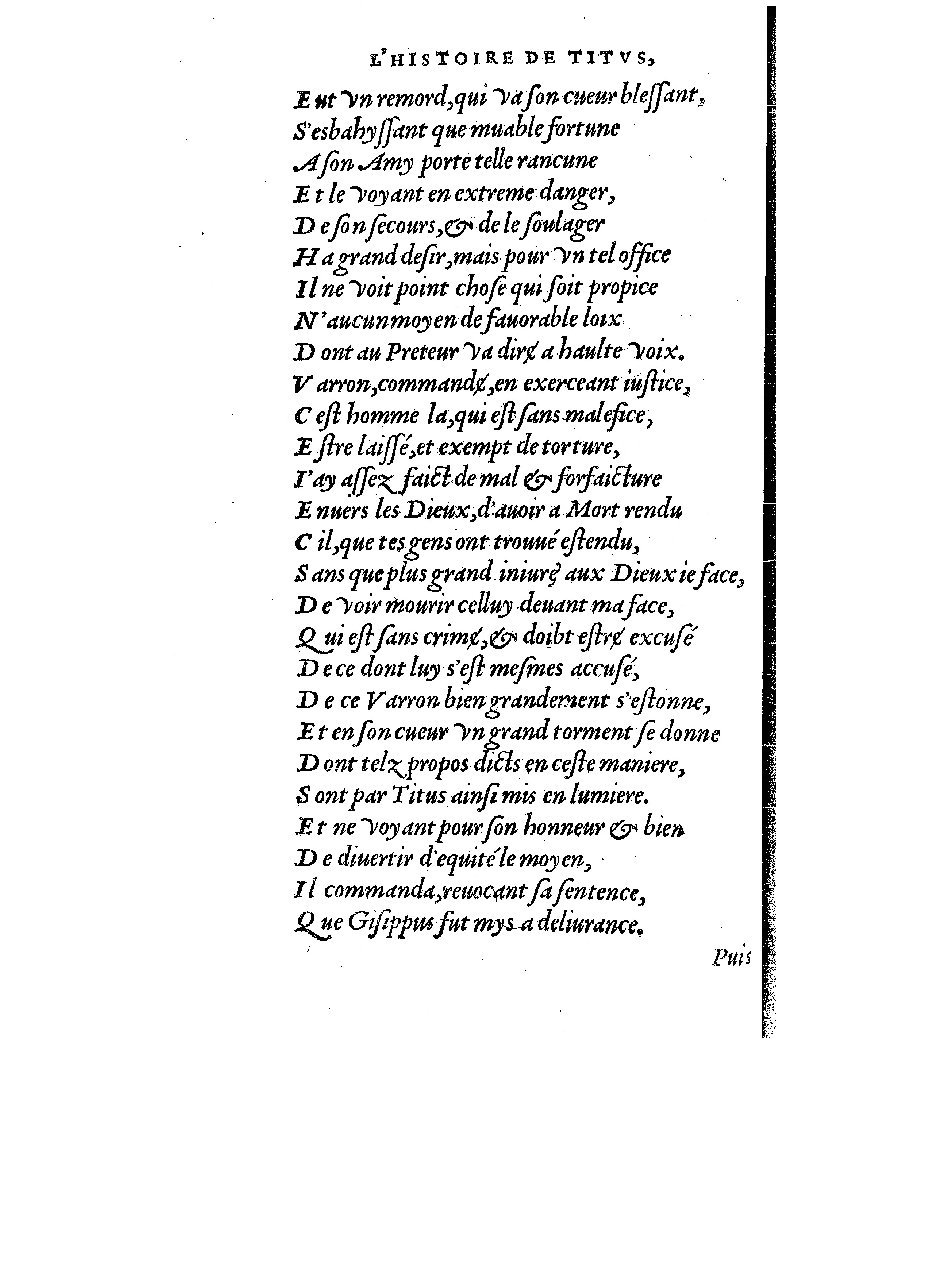 L'HISTOIRE DE TITVS,
Eut vn remord, qui va ſon cueur bleſſant,
S'esbahyſſant que muable fortune
A ſon Amy porte telle rancune
Et le voyant en extreme danger,
De ſon ſecours, & de le ſoulager
Ha grand deſir, mais pour vn tel office
Il ne voit point choſe qui ſoit propice
N'aucun moyen de fauorable loix
Dont au Preteur va dirɇ a haulte voix.
Varron, commandɇ, en exerceant iuſtice,
Ceſt homme la, qui eſt ſans malefice,
Eſtre laiſſé, et exempt de torture,
I'ay aſſez faict de mal & forfaicture
Enuers les Dieux, d'auoir a Mort rendu
Cil, que tes gens ont trouué eſtendu,
Sans que plus grand iniurɇ aux Dieux ie face,
De voir mourir celluy deuant ma face,
Qui eſt ſans crimɇ, & doibt eſtrɇ excuſé
De ce dont luy s'eſt meſmes accuſé,
De ce Varron bien grandement s'eſtonne,
Et en ſon cueur vn grand torment ſe donne
Dont telz propos dicts en ceſte maniere,
Sont par Titus ainſi mis en lumiere.
Et ne voyant pour ſon honneur & bien
De diuertir d'equité le moyen,
Il commanda, reuocant ſa ſentence,
Que Giſippus fut mys a deliurance.
Puis